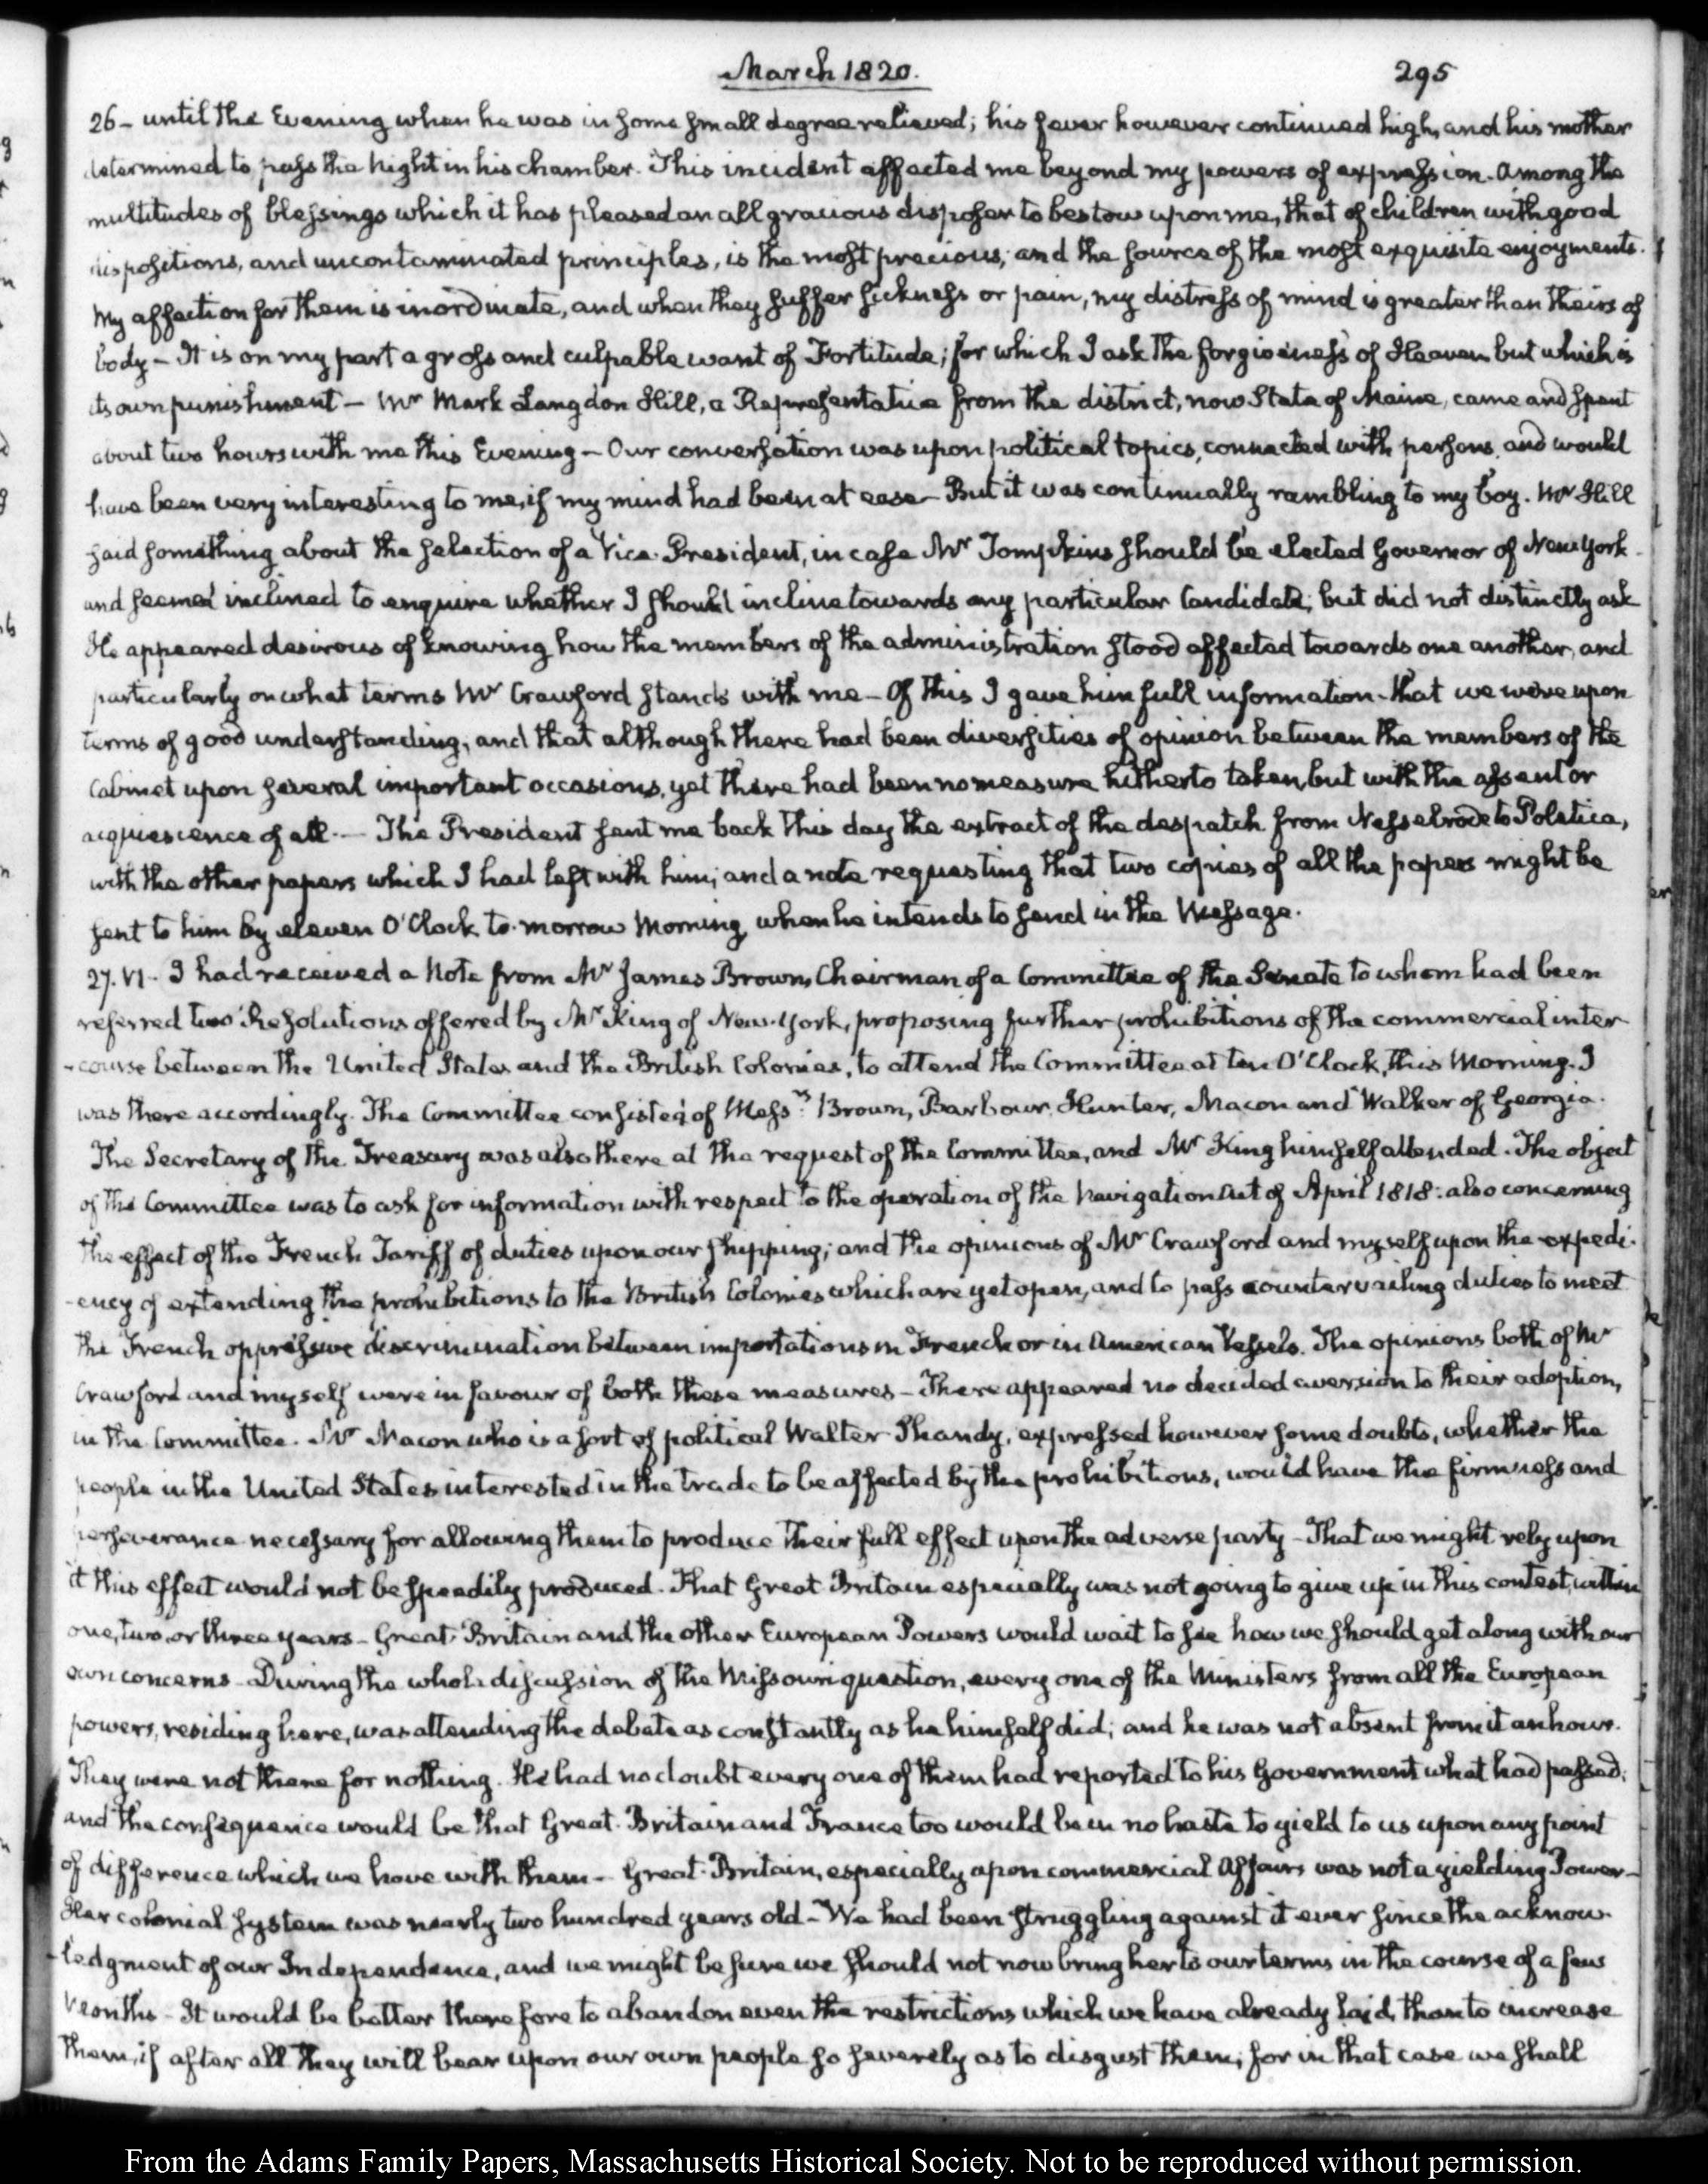 March 1820.
295
26 - until the Evening when he was in some small degree relieved; his fever however continued high, and his mother
determined to pass the night in his chamber. This incident affected me beyond my powers of expression. Among the
multitudes of blessings which it has pleased an all gracious disposer to bestow upon me, that of children with good
dispositions, and uncontaminated principles, is the most precious; and the source of the most exquisite enjoyments.
My affection for them is inordinate, and when they suffer sickness or pain, my distress of mind is greater than theirs of
body - It is on my part a gross and culpable want of Fortitude; for which I ask the forgiveness of Heaven but which is
its own punishment - Mr Mark Langdon Hill, a Representative from the district, now State of Maine, came and spent
about two hours with me this Evening - Our conversation was upon political topics, connected with persons, and would
have been very interesting to me, if my mind had been at ease - But it was continually rambling to my boy. Mr Hill
said something about the selection of a Vice-President, in case Mr Tompkins should be elected Governor of New York
and seemed inclined to enquire whether I should incline towards any particular Candidate; but did not distinctly ask
He appeared desirous of knowing how the members of the administration stood affected towards one another, and
particularly on what terms Mr Crawford stands with me - Of this I gave him full information - that we were upon
terms of good understanding, and that although there had been diversities of opinion between the members of the
Cabinet upon several important occasions, yet there had been no measure hitherto taken, but with the assent or
acquiescence of all. - The President sent me back this day the extract of the despatch from Nesselrode to Poletica,
with the other papers which I had left with him; and a note requesting that two copies of all the papers might be
sent to him by eleven O'Clock to-morrow Morning, when he intends to send in the Message.
27. VI. I had received a Note from Mr James Brown, Chairman of a Committee of the Senate to whom had been
referred two Resolutions offered by Mr King of New-York, proposing further prohibitions of the commercial inter
-course between the United States and the British Colonies, to attend the Committee at ten O'Clock, this Morning. I
was there accordingly. The Committee consisted of Messrs Brown, Barbour, Hunter, Macon and Walker of Georgia.
The Secretary of the Treasury was also there at the request of the Committee, and Mr King himself attended. The object
of the Committee was to ask for information with respect to the operation of the Navigation Act of April 1818: also concerning
the effect of the French Tariff of duties upon our shipping; and the opinions of Mr Crawford and myself upon the expedi-
-ency of extending the prohibitions to the British Colonies which are yet open, and to pass countervailing duties to meet
the French oppressive discrimination between importations in French or in American Vessels. The opinions both of Mr
Crawford and myself were in favour of both these measures - There appeared no decided aversion to their adoption,
in the Committee. Mr Macon who is a sort of political Walter Shandy, expressed however some doubts, whether the
people in the United States interested in the trade to be affected by the prohibitions, would have the firmness and
perseverance necessary for allowing them to produce their full effect upon the adverse party - That we might rely upon
it this effect would not be speedily produced. That Great Britain especially was not going to give up in this contest, within
one, two, or three years - Great-Britain and the other European Powers would wait to see how we should get along with our
own concerns - During the whole discussion of the Missouri question, every one of the Ministers from all the European
powers, residing here, was attending the debate as constantly as he himself did; and he was not absent from it an hour.
They were not there for nothing. He had no doubt every one of them had reported to his Government what had passed;
and the consequence would be that Great-Britain and France too would be in no haste to yield to us upon any point
of difference which we have with them - Great-Britain, especially upon commercial Affairs was not a yielding Power -
Her colonial system was nearly two hundred years old - We had been struggling against it ever since the acknow-
-ledgment of our Independence, and we might be sure we should not now bring her to our terms in the course of a few
Months - It would be better therefore to abandon even the restrictions which we have already laid, than to increase
them, if after all they will bear upon our own people so severely as to disgust them; for in that case we shall
From the Adams Family Papers, Massachusetts Historical Society. Not to be reproduced without permission.